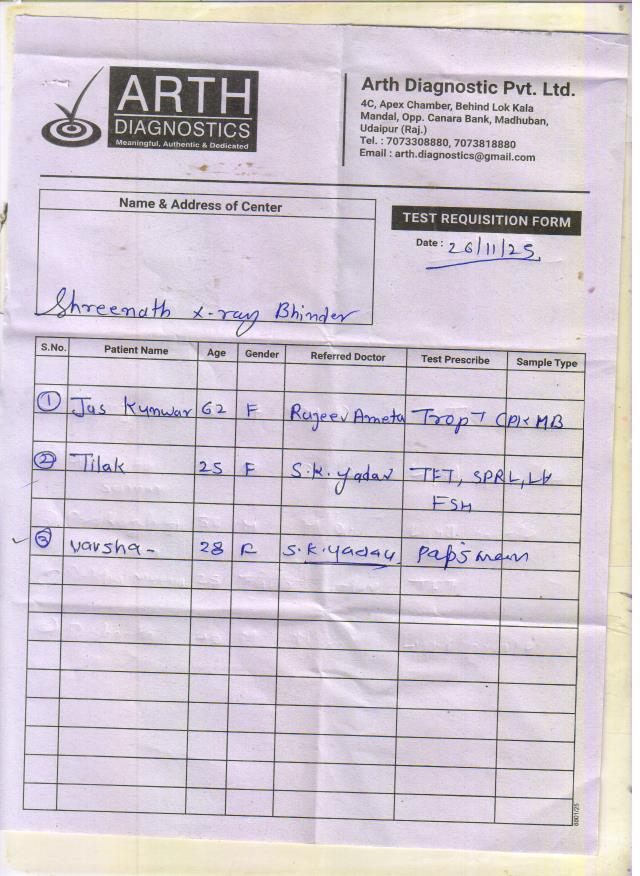 ARTH
DIAGNOSTICS
Meaningful, Authentic & Dedicated
Arth Diagnostic Pvt. Ltd.
4C, Apex Chamber, Behind Lok Kala
Mandal, Opp. Canara Bank, Madhuban,
Udaipur (Raj.)
Tel. : 7073308880, 7073818880
Email : arth.diagnostics@gmail.com
Name & Address of Center
TEST REQUISITION FORM
Date : 26/11/25
Shreenath x-ray Bhinder
S.No. Patient Name Age Gender Referred Doctor Test Prescribe Sample Type
1 Jas Kunwar 62 F Rajeev Ameta Trop T CPK MB
2 Tilak 25 F S.K. Yadav TFT, SPRL, LH
FSH
3 varsha- 28 F S.K. Yadav pap's mear
6801/25